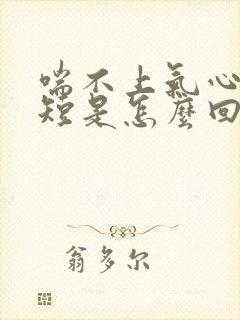 喘不上氣心
短是怎麼回
翁多尔